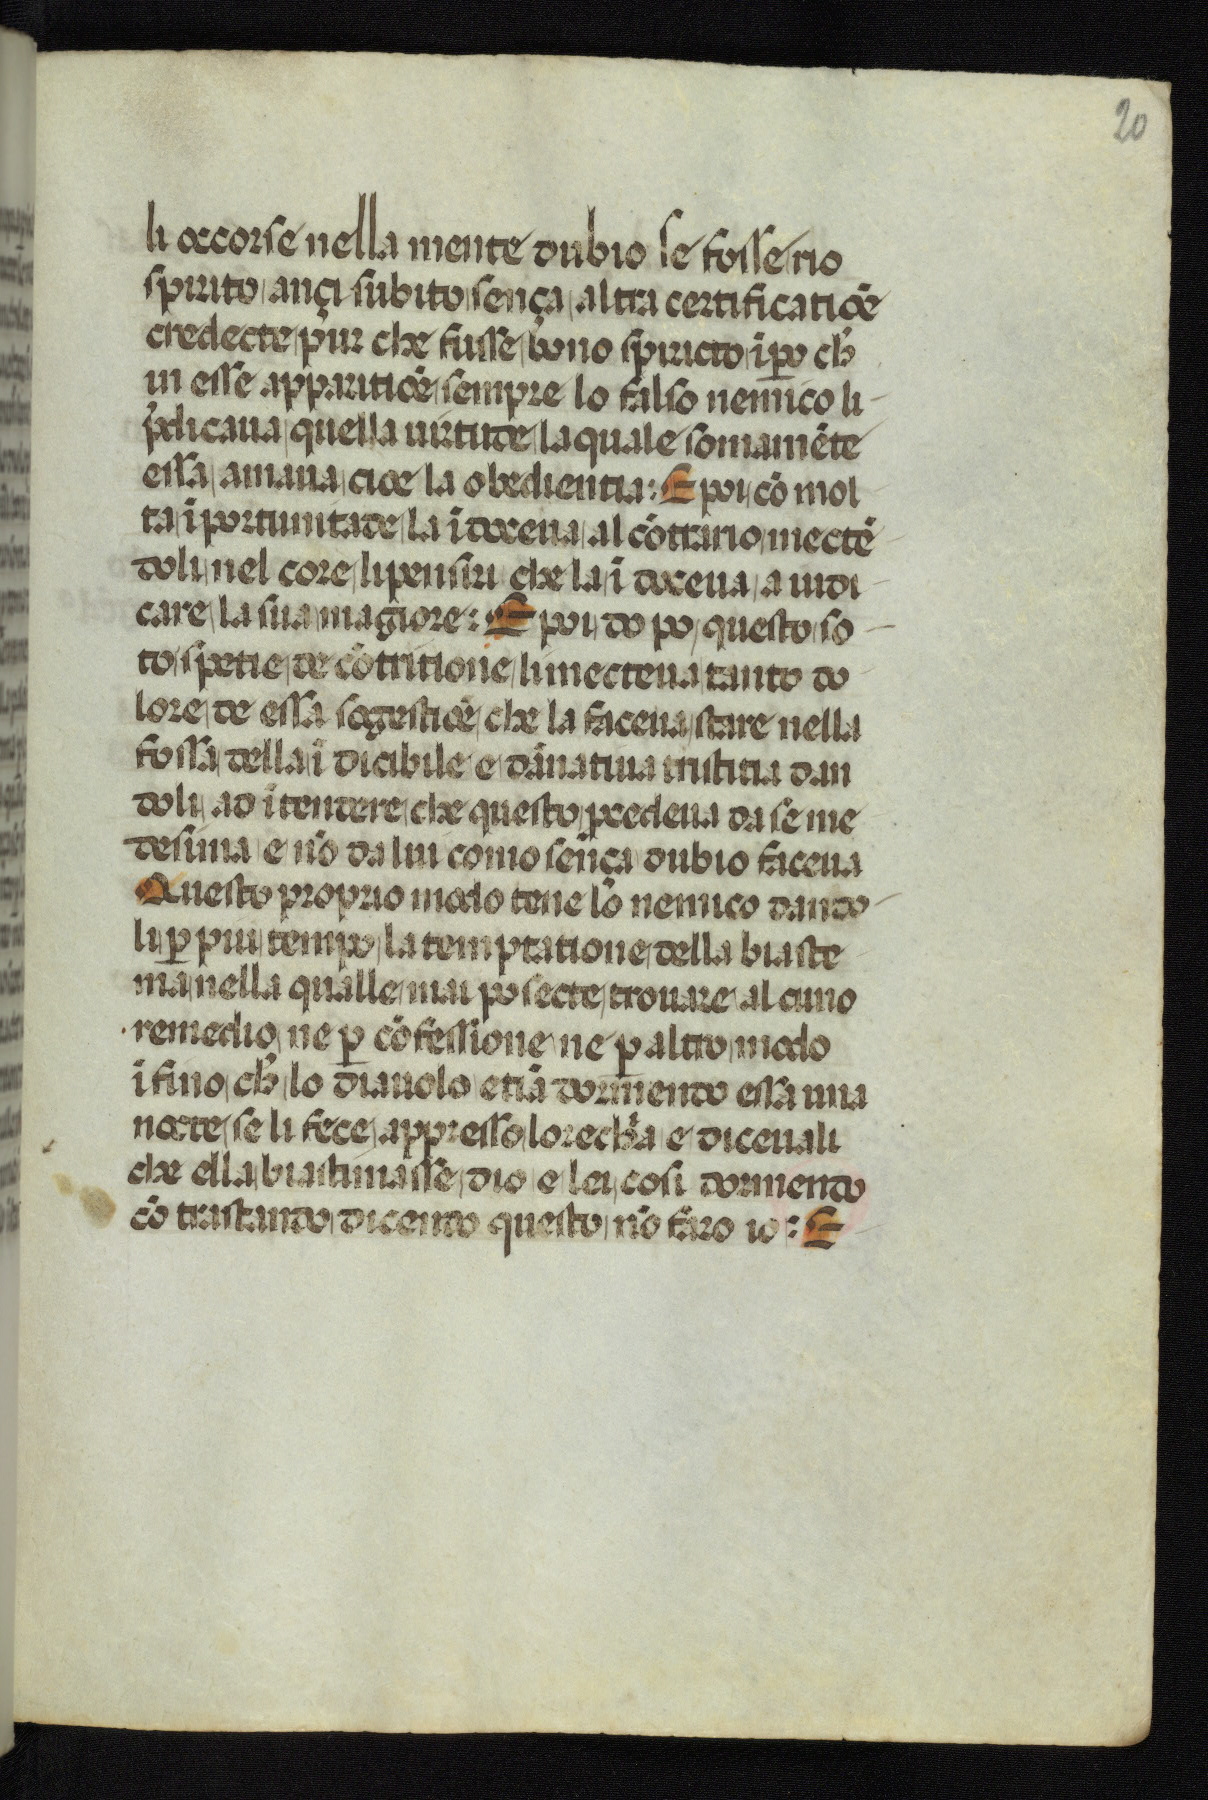 20
li occorse nella mente dubio se fosse rio
spirito ançi subito sença altra certificatiõe
credecte pur che fusse bono spiricto ipo ch̃
in esse apparitiõe sempre lo falso nemico li
p̃dicaua quella uirtude la quale somamẽte
essa amaua cioe la obedientia: E poi cõ mol
ta ĩportunitade la ĩdoceua al cõtrario mectẽ
doli nel core li pensiri che la ĩ doceua a iudi
care la sua magiore: E poi do po questo so
to spetie de cõtritione li mecteua tanto do
lore de essa sogestiõe che la faceua stare nella
fossa della ĩ dicibile e dãnatiua tristitia dan
doli ad ĩtendere che questo p̱cedeua da se me
desima e nõ da lui como sença dubio faceua
Questo proprio modo tene lo nemico dando
li p̱ piu tempo la temptatione della biaste
ma nella qualle mai po secte trouare al cuno
remedio ne p̱ cõfessione ne p̱ altro modo
ĩ fino ch̃ lo diauolo etiã dormendo essa una
nocte se li fece appresso lorech̃a e diceuali
che ella biastimasse dio e lei cosi dormendo
cõ trastando dicendo questo nõ faro io: E